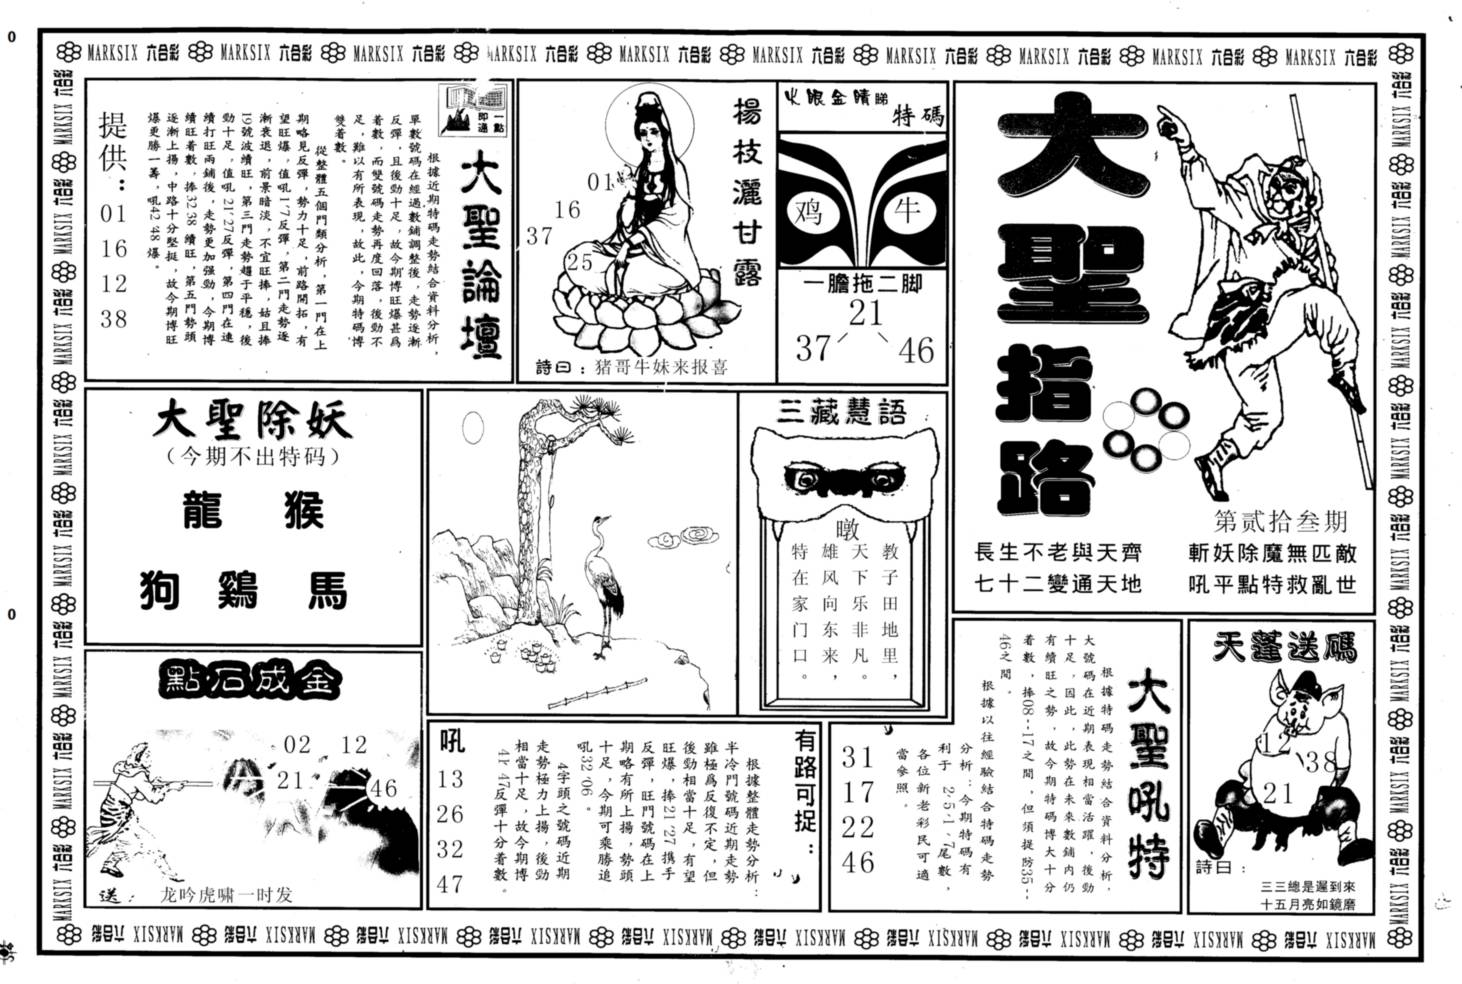 MARKSIX 六合彩 MARKSIX 六合彩 MARKSIX 六合彩 MARKSIX 六合彩 MARKSIX 六合彩 MARKSIX 六合彩 MARKSIX 六合彩 MARKSIX 六合彩 MARKSIX 六合彩 MARKSIX 六合彩
大聖指路
第贰拾叁期
長生不老與天齊
七十二變通天地
斬妖除魔無匹敵
吼平點特救亂世
火眼金睛睇
特碼
鸡
牛
一膽拖二脚
21
37
46
楊枝灑甘露
01
16
37
25
詩曰：猪哥牛妹来报喜
一點即通
大聖論壇
根據近期特碼走勢結合資料分析，
單數號碼在經過數鋪調整後，走勢逐漸
反彈，且後勁十足，故今期博旺爆甚爲
着數，而雙號碼走勢再度回落，後勁不
足，難以有所表現，故此，今期特碼博
雙着數。
從整體五個門類分析，第一門在上
期略見反彈，勢力十足，前路開拓，有
望旺爆，值吼1·7反彈，第二門走勢逐
漸衰退，前景暗淡，不宜旺捧，姑且捧
19號波續旺，第三門走勢趨于平穩，後
勁十足，值吼21·27反彈，第四門在連
續打旺兩鋪後，走勢更加强勁，今期博
續旺着數，捧32·38續旺，第五門勢頭
逐漸上揚，中路十分堅挺，故今期博旺
爆更勝一籌，吼42·48爆。
提供：
01
16
12
38
大聖除妖
（今期不出特码）
龍 猴
狗 鷄 馬
三藏慧語
暾
教子田地里，
天下乐非凡。
雄风向东来，
特在家门口。
點石成金
02
12
21
46
送： 龙吟虎啸一时发
有路可捉：
根據整體走勢分析：
半冷門號碼近期走勢
雖極爲反復不定，但
後勁相當十足，有望
旺爆，捧21·27携手
反彈，旺門號碼在上
期略有所上揚，勢頭
十足，今期可乘勝追
吼32·06。
4字頭之號碼近期
走勢極力上揚，後勁
相當十足，故今期博
41·47反彈十分着數。
吼
13
26
32
47
大聖吼特
根據特碼走勢結合資料分析，
大號碼在近期表現相當活躍，後勁
十足，因此，此勢在未來數鋪内仍
有續旺之勢，故今期特碼博大十分
着數，捧08--17之間，但須提防35--
46之間。
根據以往經驗結合特碼走勢
分析：今期特碼有
利于 2·5·1·7尾數，
各位新老彩民可適
當參照。
31
17
22
46
天蓬送碼
38
21
詩曰：
三三總是遲到來
十五月亮如鏡磨